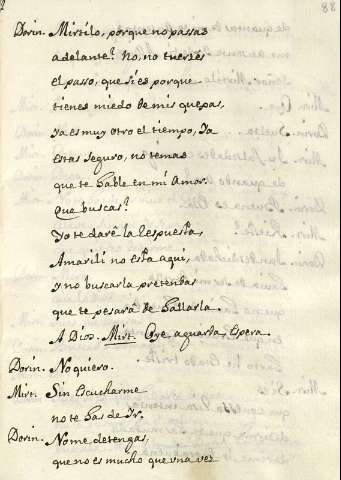 88
Dorin. Mirtilo, porque no passas
adelante? No, no tuerzes
el passo, que si es porque
tienes miedo de mis quexas,
Ya es muy otro el tiempo, Ya
estas seguro, no temas
que te hable en mi Amor.
Que buscas?
Yo te darè la respuesta,
Amarili no esta aqui,
y no buscarla pretendas
que te pesará de hallarla.
A Dios. Mirt. Oye, aguarda, espera.
Dorin. No quiero.
Mirt. Sin Escucharme
no te has de Ir.
Dorin. No me detengas,
que no es mucho que vna vez